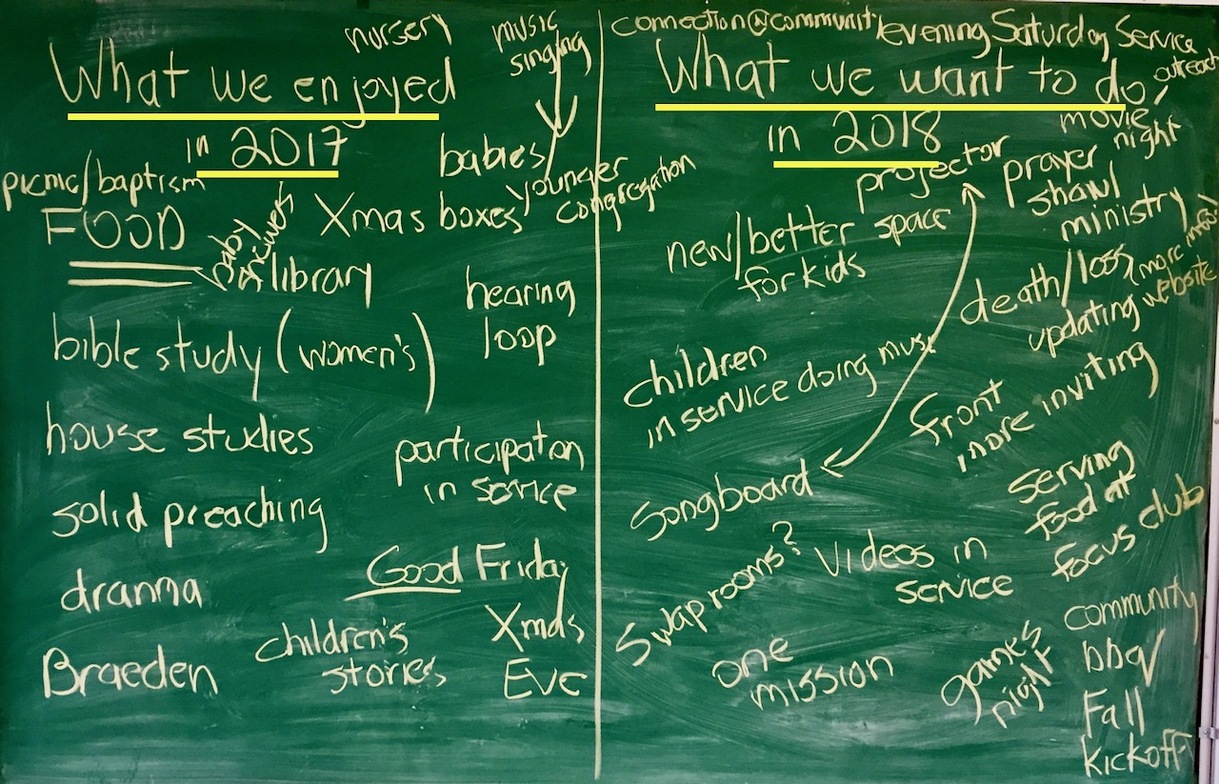 nursery
music
singing
What we enjoyed
in 2017
babies
younger
congregation
picnic/baptism
FOOD
baby
showers
Xmas boxes
library
hearing
loop
bible study (women's)
house studies
participaton
in service
solid preaching
Good Friday
drama
Xmas
Eve
children's
stories
Braeden
connection@communit
evening Saturday Service
outreach
What we want to do
in 2018
movie
night
projector
prayer
shawl
ministry
new/better space
for kids
death/loss
(more info)
updating website
children
in service doing music
front
more inviting
songboard
serving
food at
focus club
swap rooms?
Videos in
service
one
mission
games
night
community
bbq/
Fall
kickoff